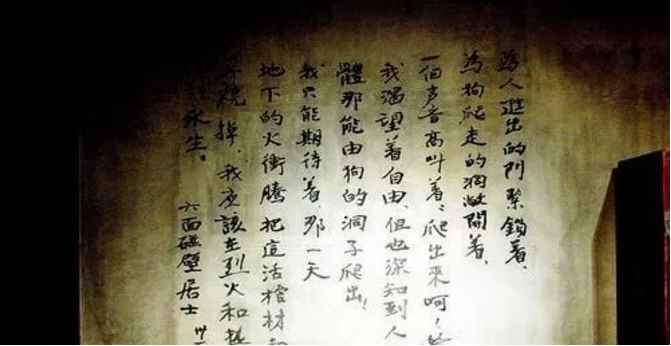 為人進出的門緊鎖着、
為狗爬走的洞敞開着、
一個声音高叫着、爬出來呵！
我渴望着自由、但也深知到人
體那能由狗的洞子爬出！
我只能期待着、那一天
地下的火衝騰把這活棺材
燒掉、我应該在烈火和
永生。
六面碰壁居士 卅